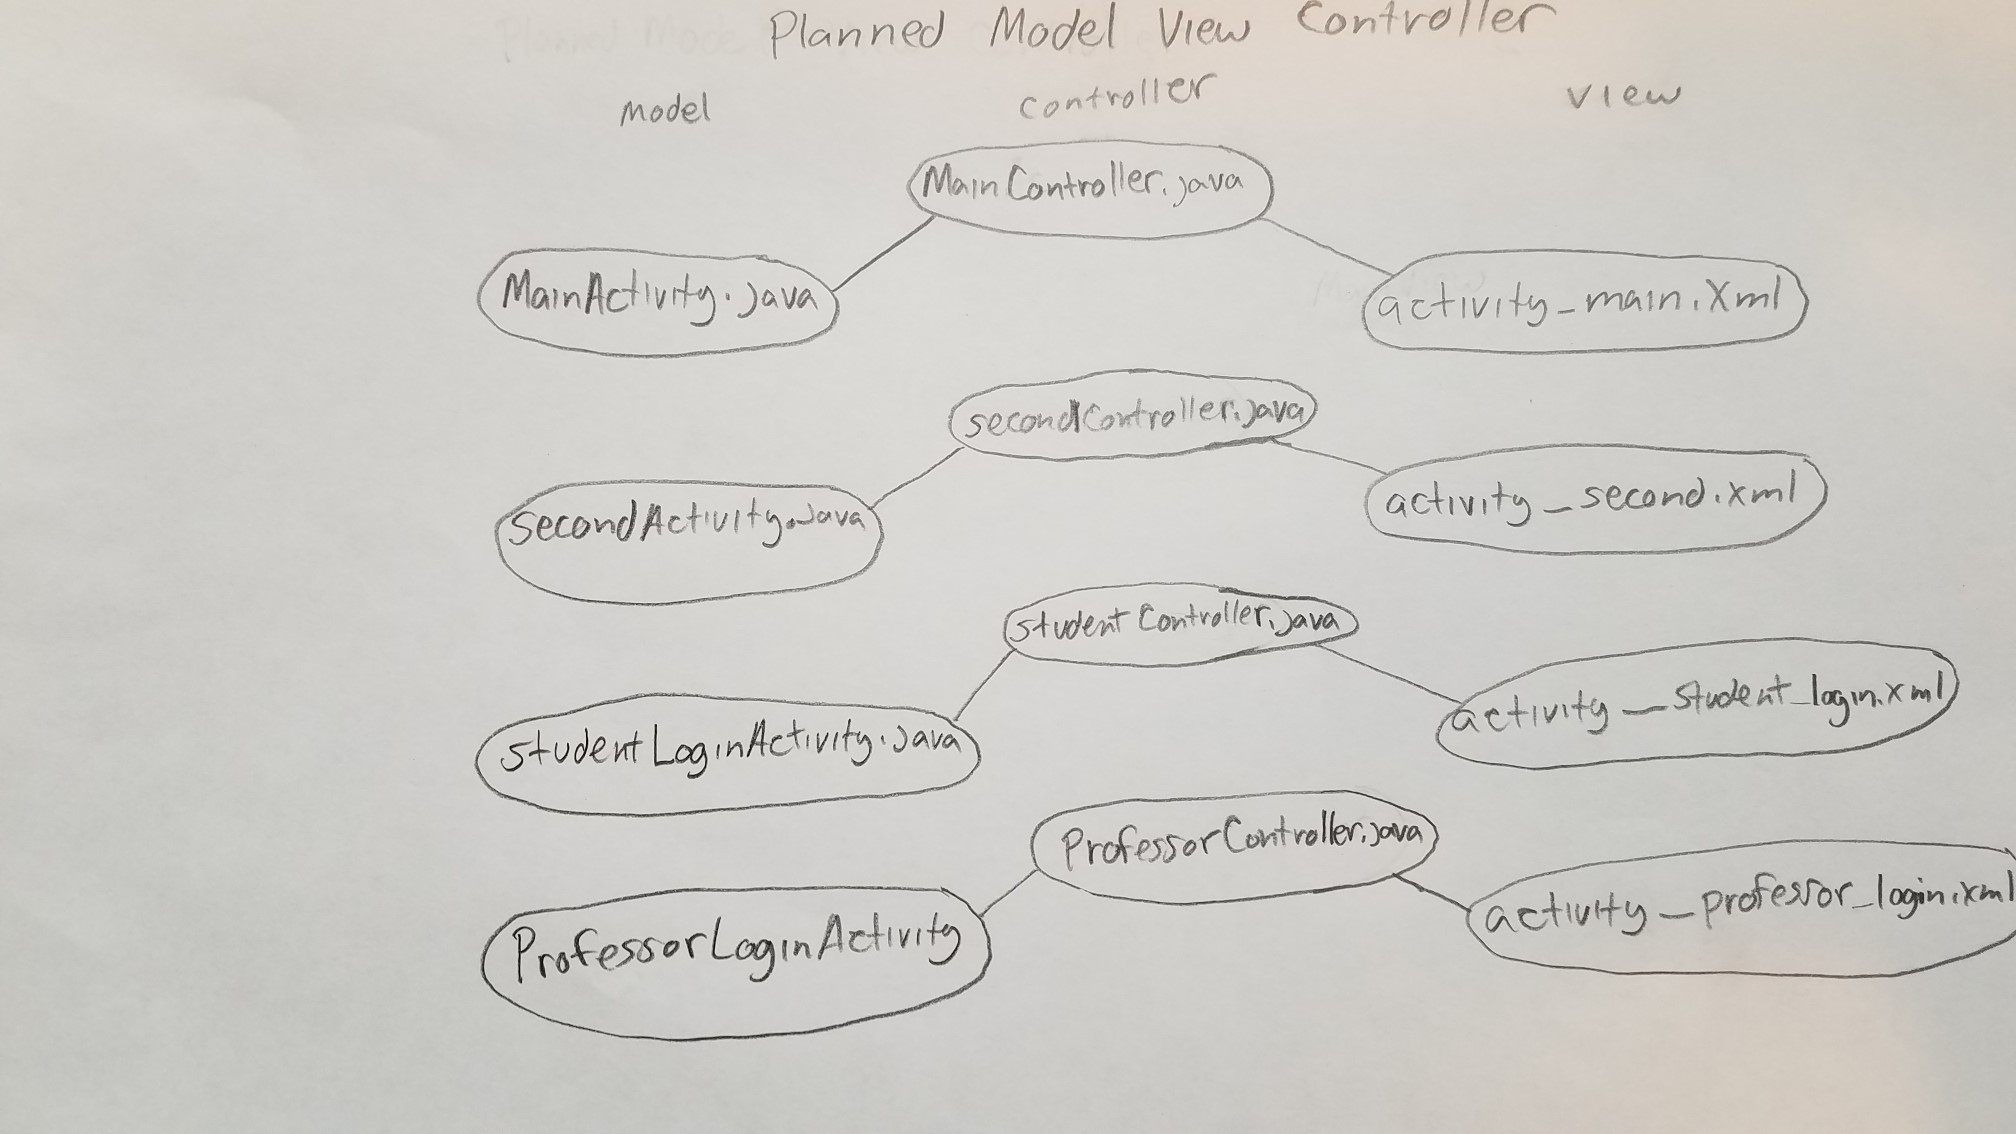 Planned Model View Controller
model controller view
MainController.java
MainActivity.java
activity_main.xml
secondController.java
secondActivity.java
activity_second.xml
studentController.java
studentLoginActivity.java
activity_student_login.xml
ProfessorController.java
ProfessorLoginActivity
activity_professor_login.xml